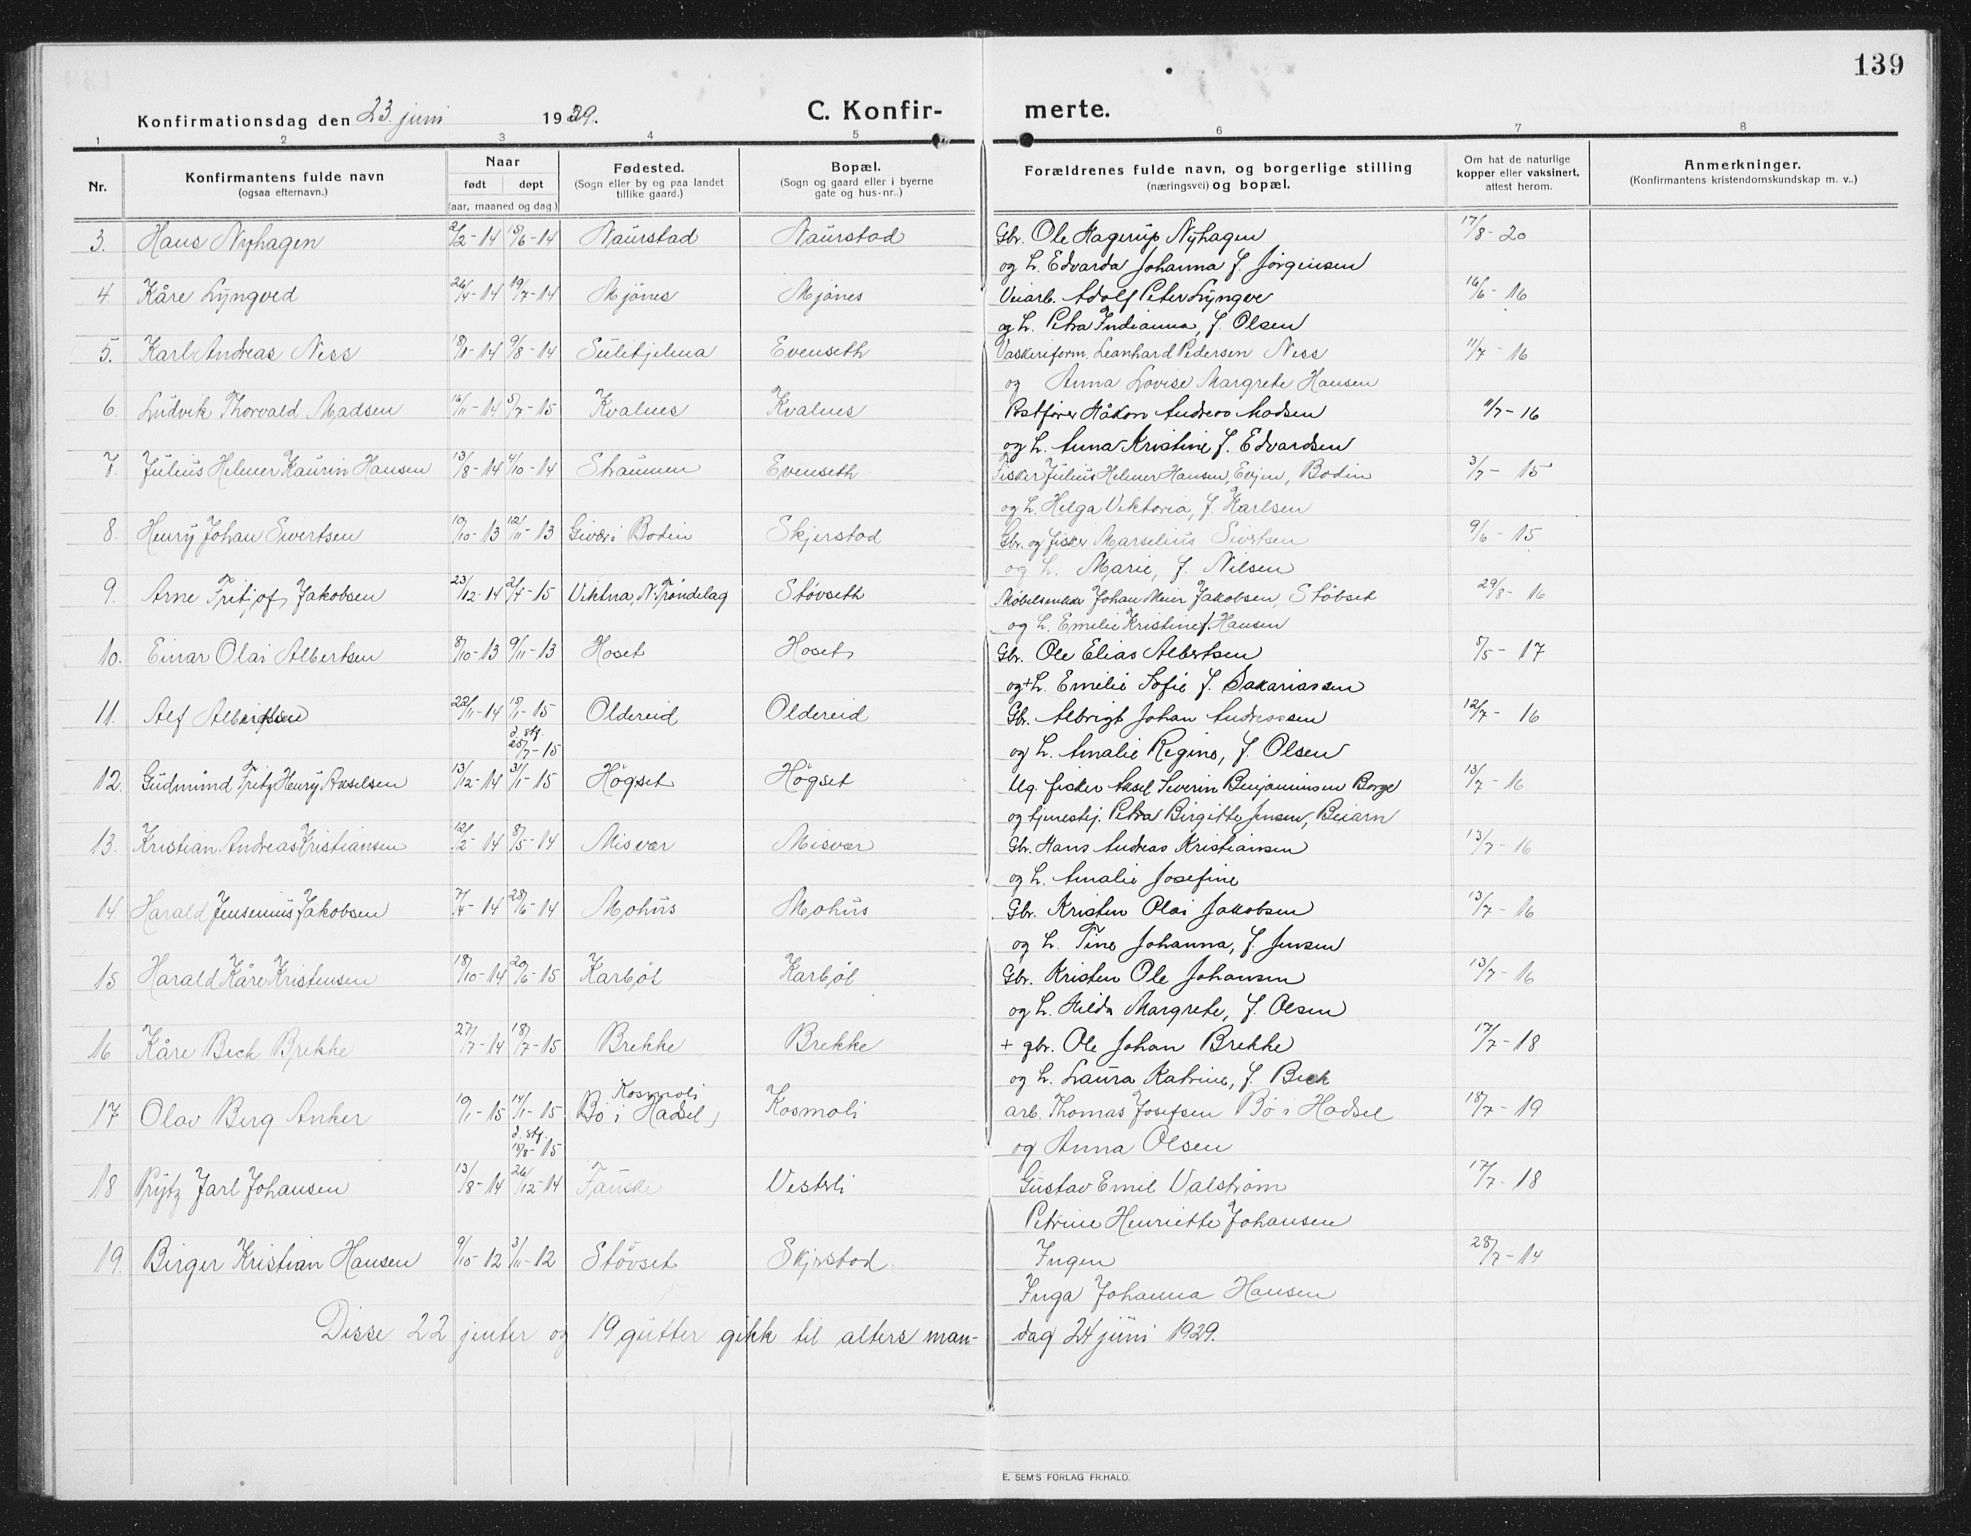 139
Konfirmationsdag den 23. juni 1929. C. Konfir- merte.
1 2 3 4 5 6 7 8
Nr. Konfirmantens fulde navn (ogsaa efternavn.) Naar født døpt (aar, maaned og dag.) Fødested. (Sogn eller by og paa landet tillike gaard.) Bopæl. (Sogn og gaard eller i byerne gate og hus-nr..) Forældrenes fulde navn, og borgerlige stilling (næringsvei) og bopæl. Om hat de naturlige kopper eller vaksinert, attest herom. Anmerkninger. (Konfirmantens kristendomskundskap m. v..)
3. Hans Nyhagen 2/2-14 5/6-14 Naurstad Naurstad Gbr. Ole Hagerup Nyhagen 17/8-20
og h. Edvarda Johanna f. Jørgensen
4. Kåre Lyngved 26/4-14 19/7-14 Mjönes Mjönes Veiarb. Adolf Peter Lyngve 16/6-16
og h. Petra Indianna, f. Olsen
5. Karl Andreas Ness 18/1-14 9/8-14 Sulitjelma Evenseth Vaskeriform. Leanhard Pedersen Ness 11/7-16
og Anna Lovise Margrete Hansen
6. Ludvik Thorvald Madsen 16/11-14 5/7-15 Kvalnes Kvalnes Postfører Håkon Andreas Madsen 11/7-16
og h. Anna Kristine, f. Edvardsen
7. Julius Helmer Kaurin Hansen 13/8-14 4/10-14 Straumen Evenseth Fisker Julius Helmer Hansen, Evjen, Bodin 3/7-15
og h. Helga Viktoria, f. Karlsen
8. Henry Johan Sivertsen 19/10-13 12/11-13 Givær i Bodin Skjerstad Gbr. og fisker Marselius Sivertsen 9/6-15
og h. Marie, f. Nilsen
9. Arne Fritjof Jakobsen 23/12-14 2/4-15 Viktna, N. Trøndelag Støvseth Møbelsnekker Johan Meier Jakobsen, Støbset 29/8-16
og h. Emelie Kristine f. Hansen
10. Einar Olai Albertsen 8/10-13 9/11-13 Hoset Hoset Gbr. Ole Elias Albertsen 8/5-17
og + h. Emelie Sofie f. Sakariassen
11. Alf Albrigtsen 22/11-14 19/1-15 Oldereid Oldereid Gbr. Albrigt Johan Andreassen 12/7-16
d. stf. 25/7-15 og h. Amalie Regine, f. Olsen
12. Gudmund Fritz Henry Akselsen 13/12-14 31/1-15 Högset Högset Ug. fisker Aksel Severin Benjaminsen Borge 13/7-16
og tjenestej. Petra Birgitte Jensen, Beiarn
13. Kristian Andreas Kristiansen 12/2-14 8/5-14 Misvær Misvær Gbr. Hans Andreas Kristiansen 13/7-16
og h. Amalie Josefine
14 Harald Jensenius Jakobsen 7/4-14 28/6-14 Mohus Mohus Gbr. Kristen Olai Jakobsen 13/7-16
og h. Tine Johanna, f. Jensen
15 Harald Kåre Kristensen 18/10-14 20/6-15 Karbøl Karbøl Gbr. Kristen Ole Johansen 13/7-16
og h. Hilda Margrete, f. Olsen
16 Kåre Bech Brekke 27/7-14 18/7-15 Brekke Brekke + gbr. Ole Johan Brekke 17/7-18
og h. Laura Katrine, f. Bech
Kosmoli
17 Olav Berg Anker 19/1-15 14/1-15 Bö i Hadsel Kosmoli arb. Thomas Josefsen Bö i Hadsel 18/7-19
d. stf. 15/8-15 og Anna Olsen
18 Prytz Jarl Johansen 13/8-14 26/12-14 Fauske Vesterli Gustav Emil Valstrøm 17/7-18
Petrine Henriette Johansen
19. Birger Kristian Hansen 9/10-12 3/11-12 Støvset Skjerstad Ingen 28/7-14
Inga Johanna Hansen
Disse 22 jenter og 19 gutter gikk til alters man- dag 24 juni 1929.
E. SEM'S FORLAG FR.HALD.